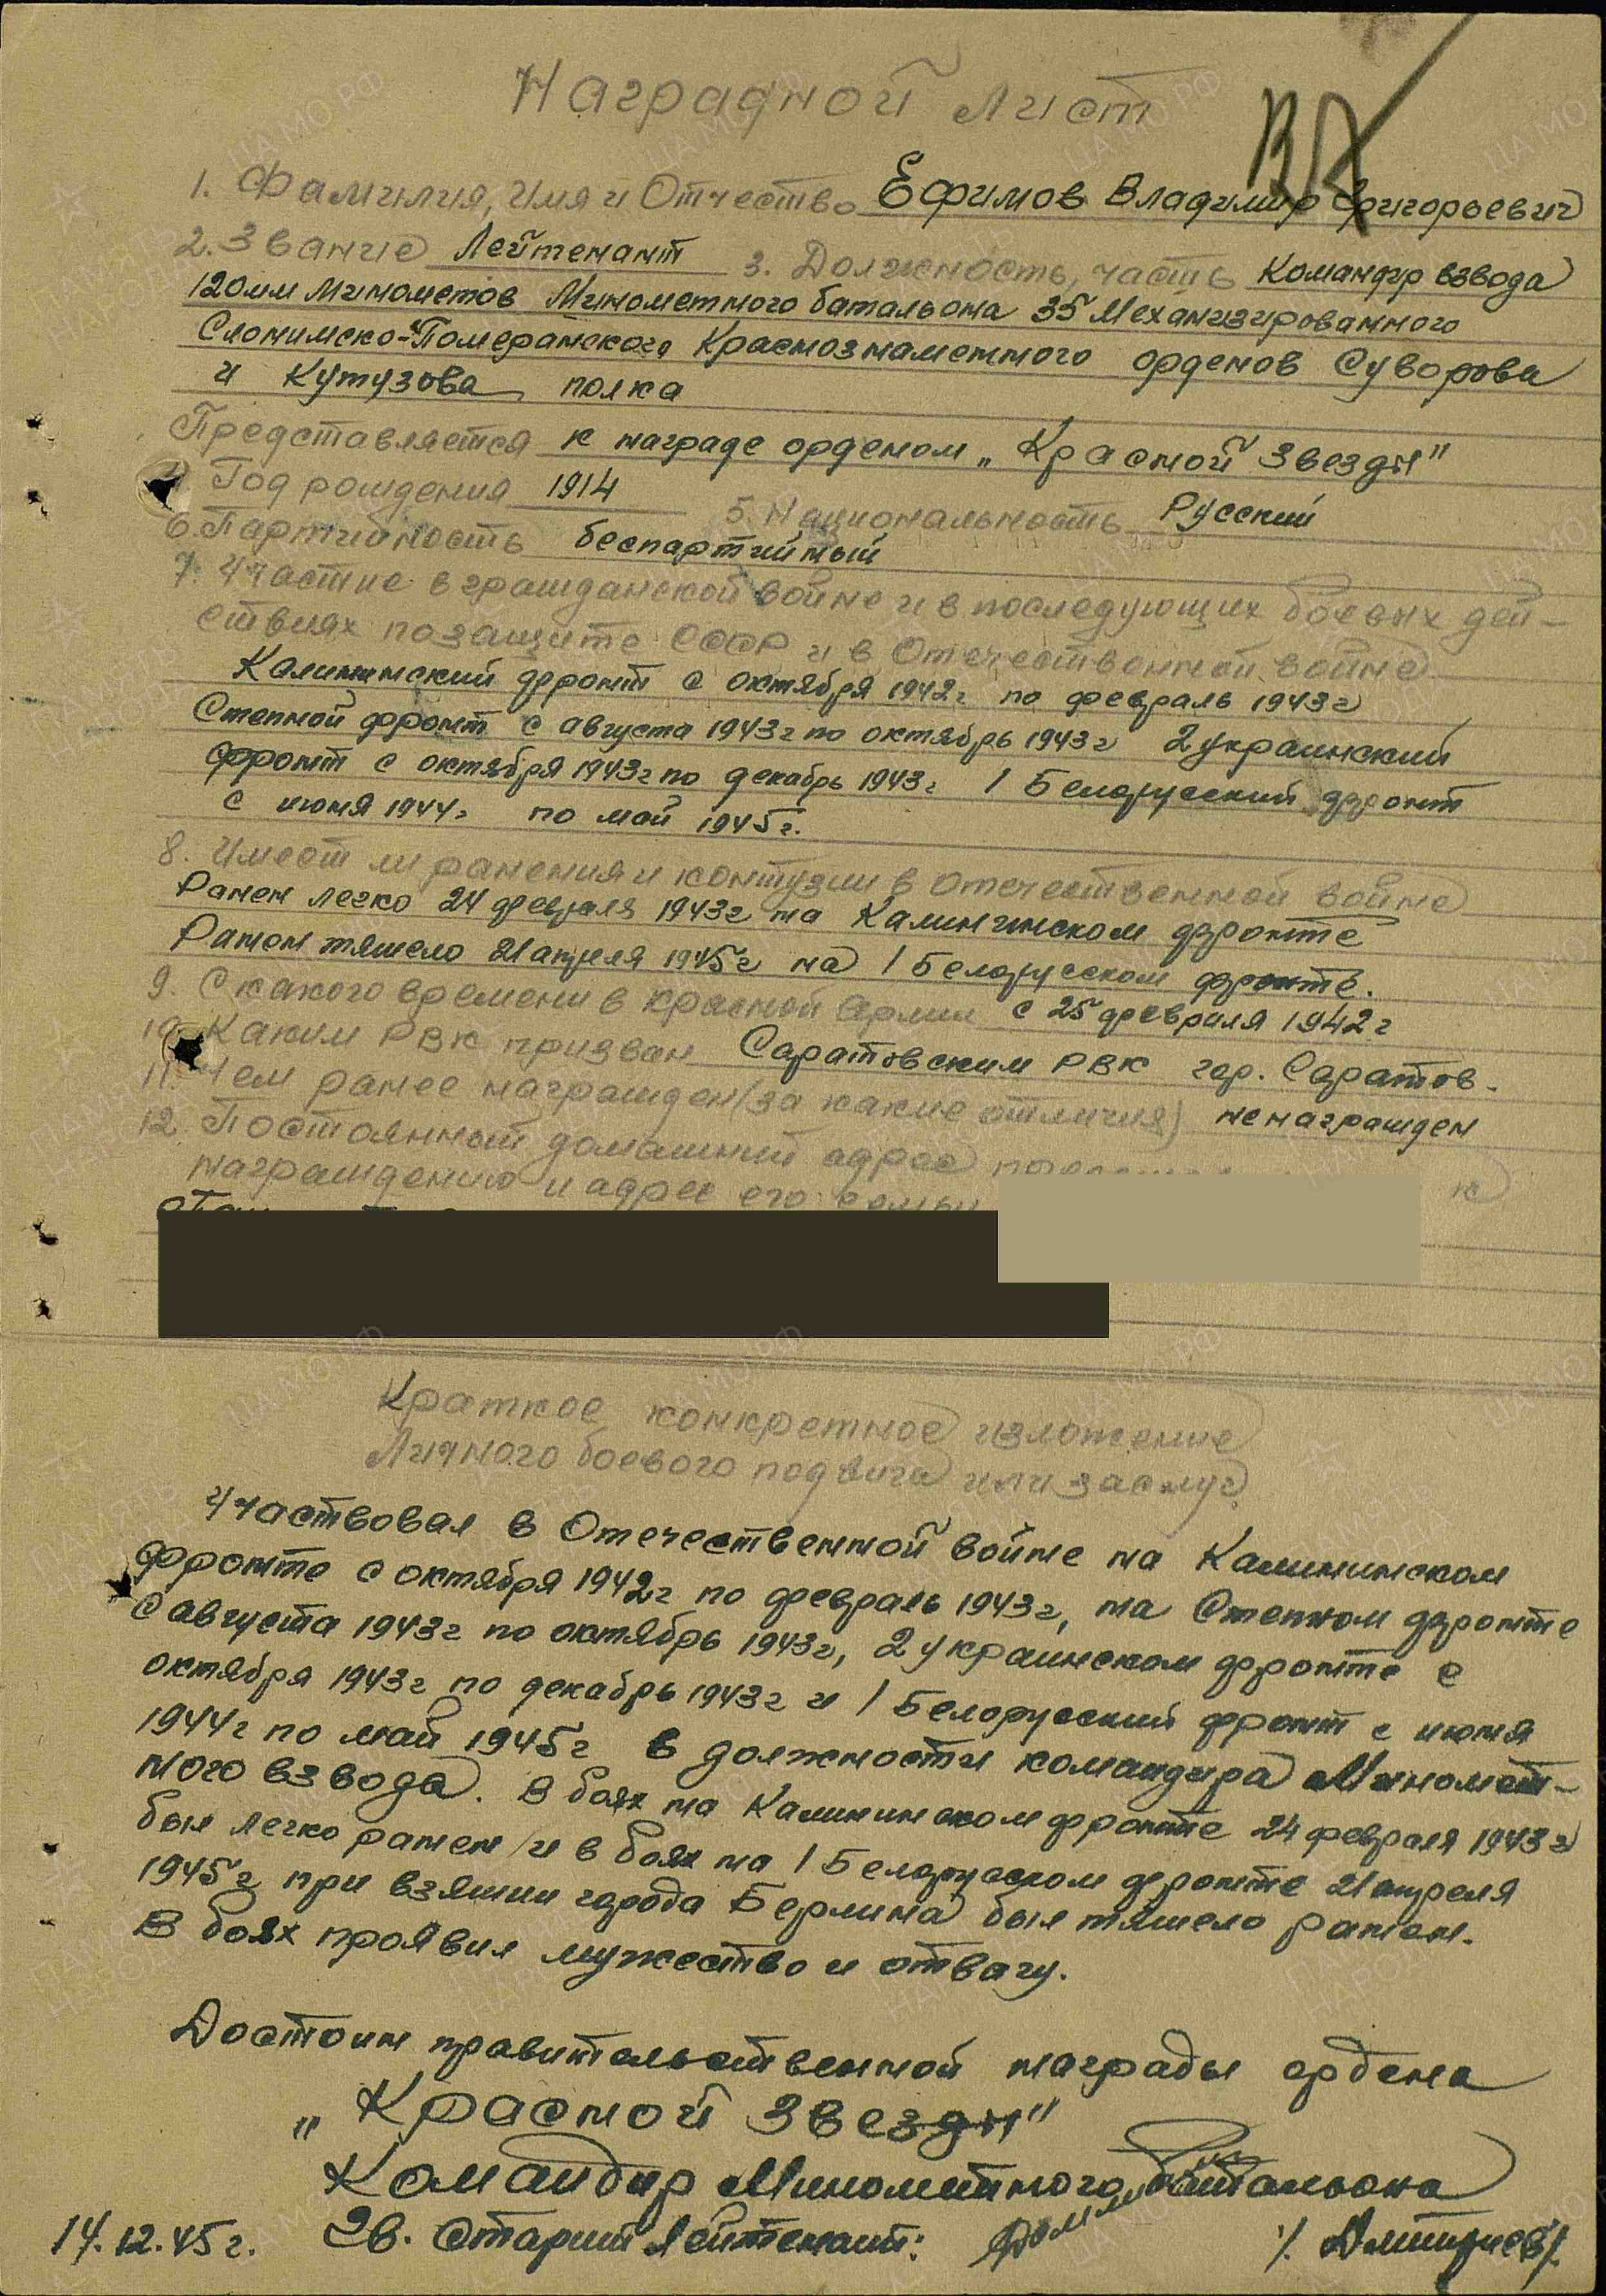 Наградной лист
1. Фамилия, Имя и Отчество Ефимов Владимир Григорьевич
2. Звание Лейтенант 3. Должность, часть Командир взвода
120мм Минометов Минометного батальона 35 Механизированного
Слонимско-Померанского Краснознаменного орденов Суворова
и Кутузова полка
Представляется к награде орденом „Красной Звезды"
4. Год рождения 1914 5. Национальность Русский
6. Партийность беспартийный
7. Участие в гражданской войне и в последующих боевых дей-
ствиях по защите СССР и в Отечественной войне
Калининский фронт с октября 1942г по февраль 1943г
Степной фронт с августа 1943г по октябрь 1943г 2 украинский
фронт с октября 1943г по декабрь 1943г 1 Белорусский фронт
с июня 1944г по май 1945г.
8. Имеет ли ранения и контузии в Отечественной войне
Ранен легко 24 февраля 1943г на Калининском фронте
Ранен тяжело 21 апреля 1945г на 1 Белорусском фронте.
9. С какого времени в Красной Армии с 25 февраля 1942г
10. Каким РВК призван Саратовским РВК гор. Саратов.
11. Чем ранее награжден (за какие отличия) не награжден
12. Постоянный домашний адрес к
награждению и адрес его семьи
Краткое конкретное изложение
Личного боевого подвига или заслуг
Участвовал в Отечественной войне на Калининском
фронте с октября 1942г по февраль 1943г, на Степном фронте
с августа 1943г по октябрь 1943г, 2 украинском фронте с
октября 1943г по декабрь 1943г и 1 Белорусский фронт с июня
1944г по май 1945г в должности командира Миномет-
ного взвода. В боях на Калининском фронте 24 февраля 1943г
был легко ранен и в боях на 1 Белорусском фронте 21 апреля
1945г при взятии города Берлина был тяжело ранен.
В боях проявил мужество и отвагу.
Достоин правительственной награды ордена
„Красной Звезды"
Командир Минометного батальона
14.12.45г. Гв. Старший Лейтенант: /. Дмитриев/.